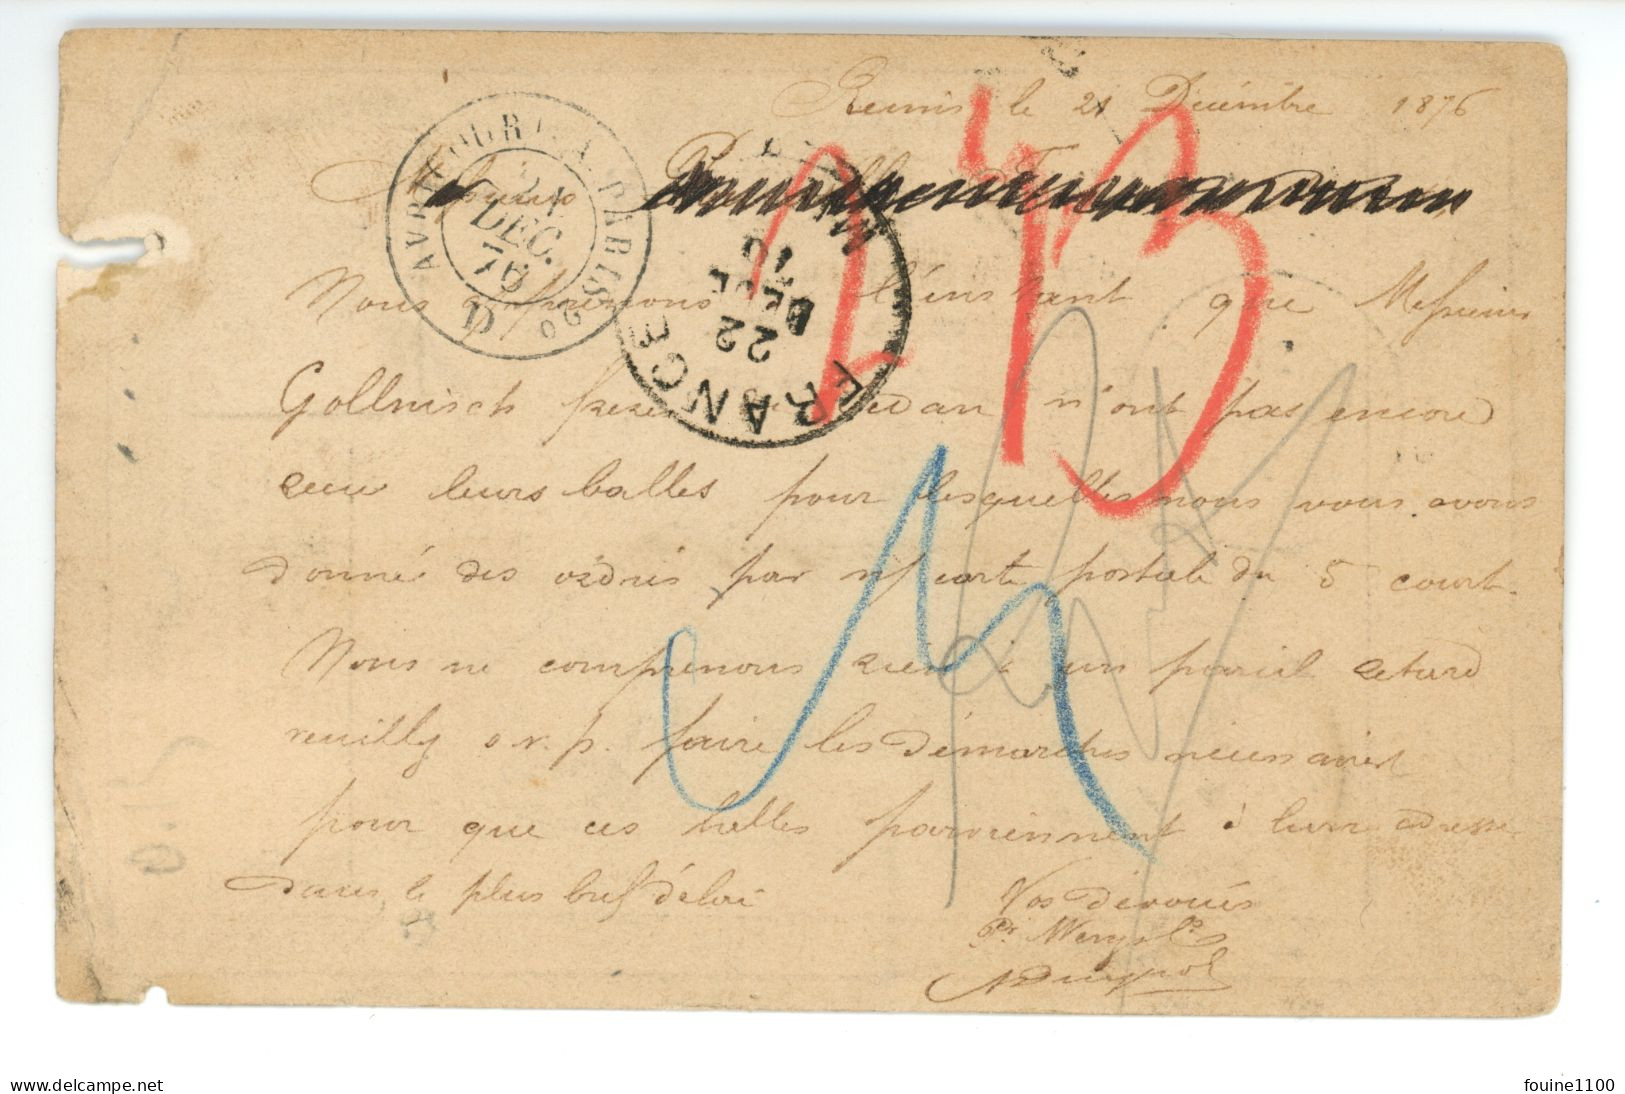 Reims le 21 Décembre 1876
Messieurs
AVRICOURT A PARIS
21
DEC.
76
2°
FRANCE
22
DECE
Nous apprenons à l'instant que Messieurs
Gollnisch frères de Sedan n'ont pas encore
recu leurs balles pour lesquelles nous vous avons
donné des ordres par n/ carte postale du 5 court.
Nous ne comprenons rien à un pareil retard
veuillez s.v.p. faire les démarches nécessaires
pour que ces balles parviennent à leur adresse
dans le plus bref délai
Vos dévoués
0.15
delcampe.net
fouine1100